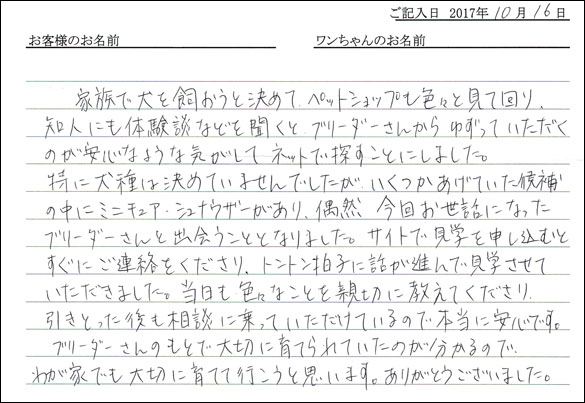 ご記入日 2017年10月16日
お客様のお名前 ワンちゃんのお名前
家族で犬を飼おうと決めて、ペットショップも色々と見て回り、
知人にも体験談などを聞くと、ブリーダーさんから ゆずっていただく
のが安心なような気がして ネットで探すことにしました。
特に犬種は決めていませんでしたが、いくつかあげていた候補
の中にミニチュア・シュナウザーがあり、偶然、今回お世話になった
ブリーダーさんと出会うこととなりました。サイトで見学を申し込むと
すぐにご連絡をくださり、トントン拍子に話が進んで見学させて
いただきました。当日も色々なことを親切に教えてくださり、
引きとった後も相談に乗っていただけているので本当に安心です。
ブリーダーさんのもとで大切に育てられていたのが分かるので、
わが家でも大切に育てて行こうと思います。ありがとうございました。